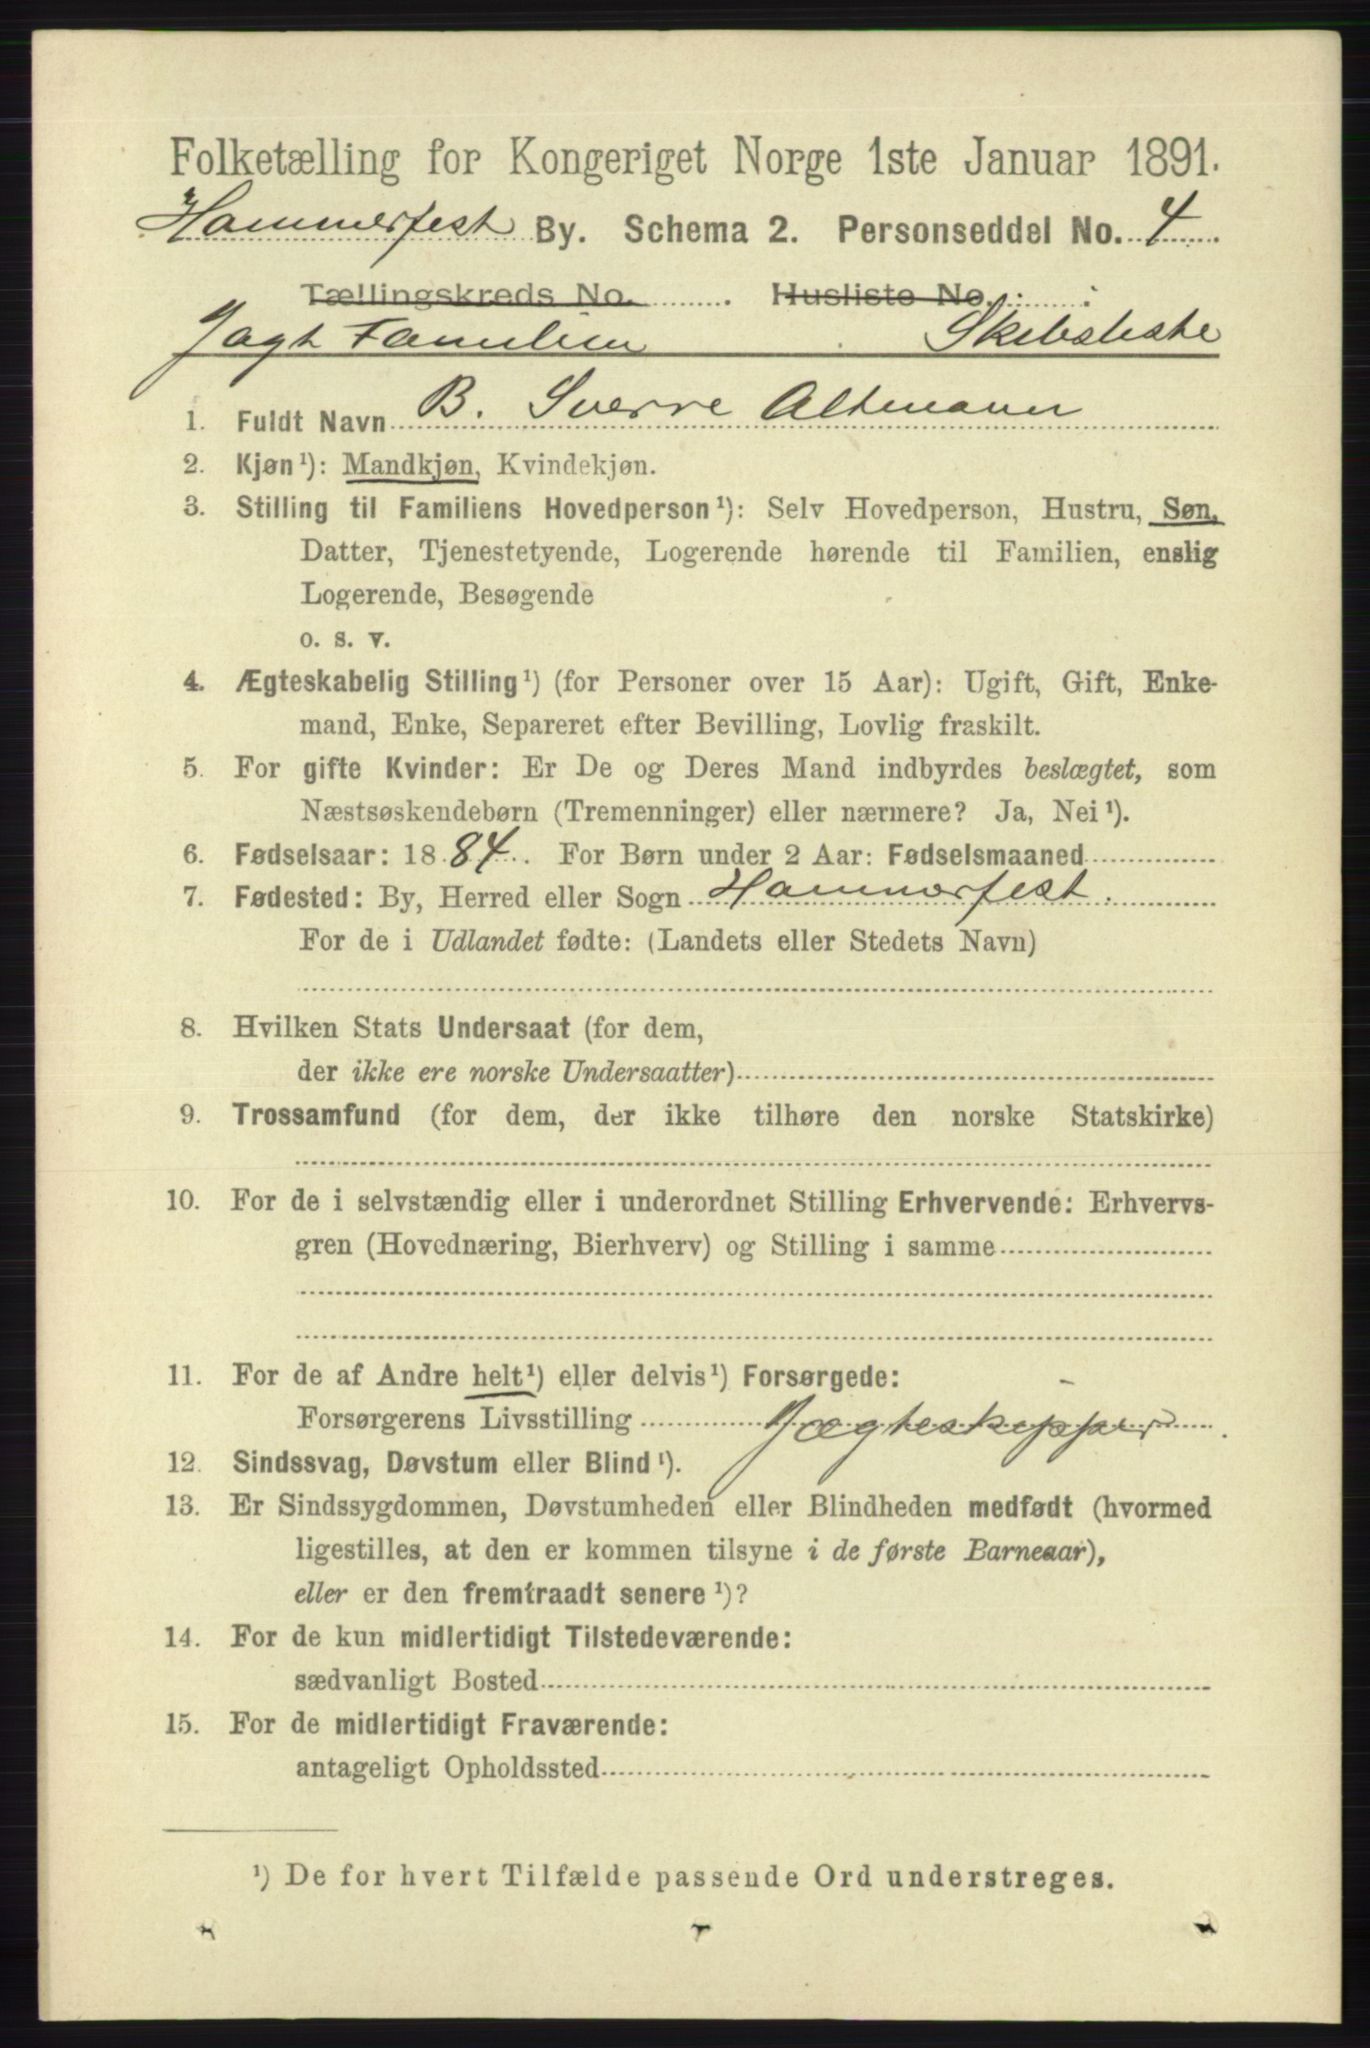 Folketælling for Kongeriget Norge 1ste Januar 1891.
Hammerfest By. Schema 2. Personseddel No. 4
Tællingskreds No. Husliste No.
Jagt Familien Skibsliste
1. Fuldt Navn B. Sverre Altmann
2. Kjøn¹): Mandkjøn, Kvindekjøn.
3. Stilling til Familiens Hovedperson¹): Selv Hovedperson, Hustru, Søn,
Datter, Tjenestetyende, Logerende hørende til Familien, enslig
Logerende, Besøgende
o. s. v.
4. Ægteskabelig Stilling¹) (for Personer over 15 Aar): Ugift, Gift, Enke-
mand, Enke, Separeret efter Bevilling, Lovlig fraskilt.
5. For gifte Kvinder: Er De og Deres Mand indbyrdes beslægtet, som
Næstsøskendebørn (Tremenninger) eller nærmere? Ja, Nei¹).
6. Fødselsaar: 1884. For Børn under 2 Aar: Fødselsmaaned
7. Fødested: By, Herred eller Sogn Hammerfest.
For de i Udlandet fødte: (Landets eller Stedets Navn)
8. Hvilken Stats Undersaat (for dem,
der ikke ere norske Undersaatter)
9. Trossamfund (for dem, der ikke tilhøre den norske Statskirke)
10. For de i selvstændig eller i underordnet Stilling Erhvervende: Erhvervs-
gren (Hovednæring, Bierhverv) og Stilling i samme
11. For de af Andre helt¹) eller delvis¹) Forsørgede:
Forsørgerens Livsstilling Jægteskipper.
12. Sindssvag, Døvstum eller Blind¹).
13. Er Sindssygdommen, Døvstumheden eller Blindheden medfødt (hvormed
ligestilles, at den er kommen tilsyne i de første Barneaar),
eller er den fremtraadt senere¹)?
14. For de kun midlertidigt Tilstedeværende:
sædvanligt Bosted
15. For de midlertidigt Fraværende:
antageligt Opholdssted
¹) De for hvert Tilfælde passende Ord understreges.